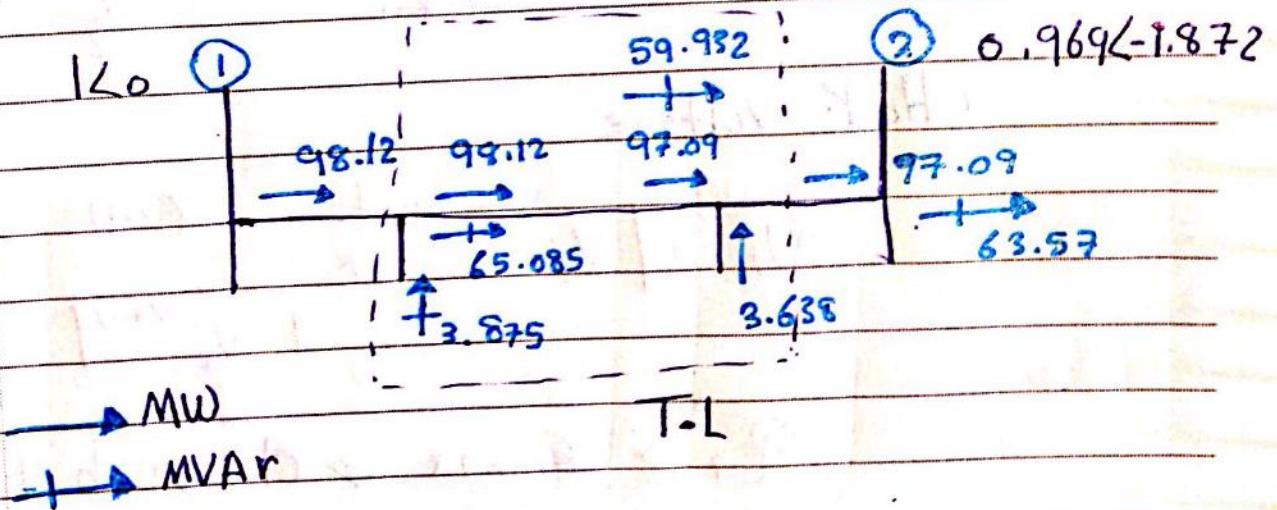 1∠0 ① 59.932 ② 0.969∠-1.872
98.12 98.12 97.09 97.09
65.085 63.57
3.875 3.638
MW T-L
MVAr